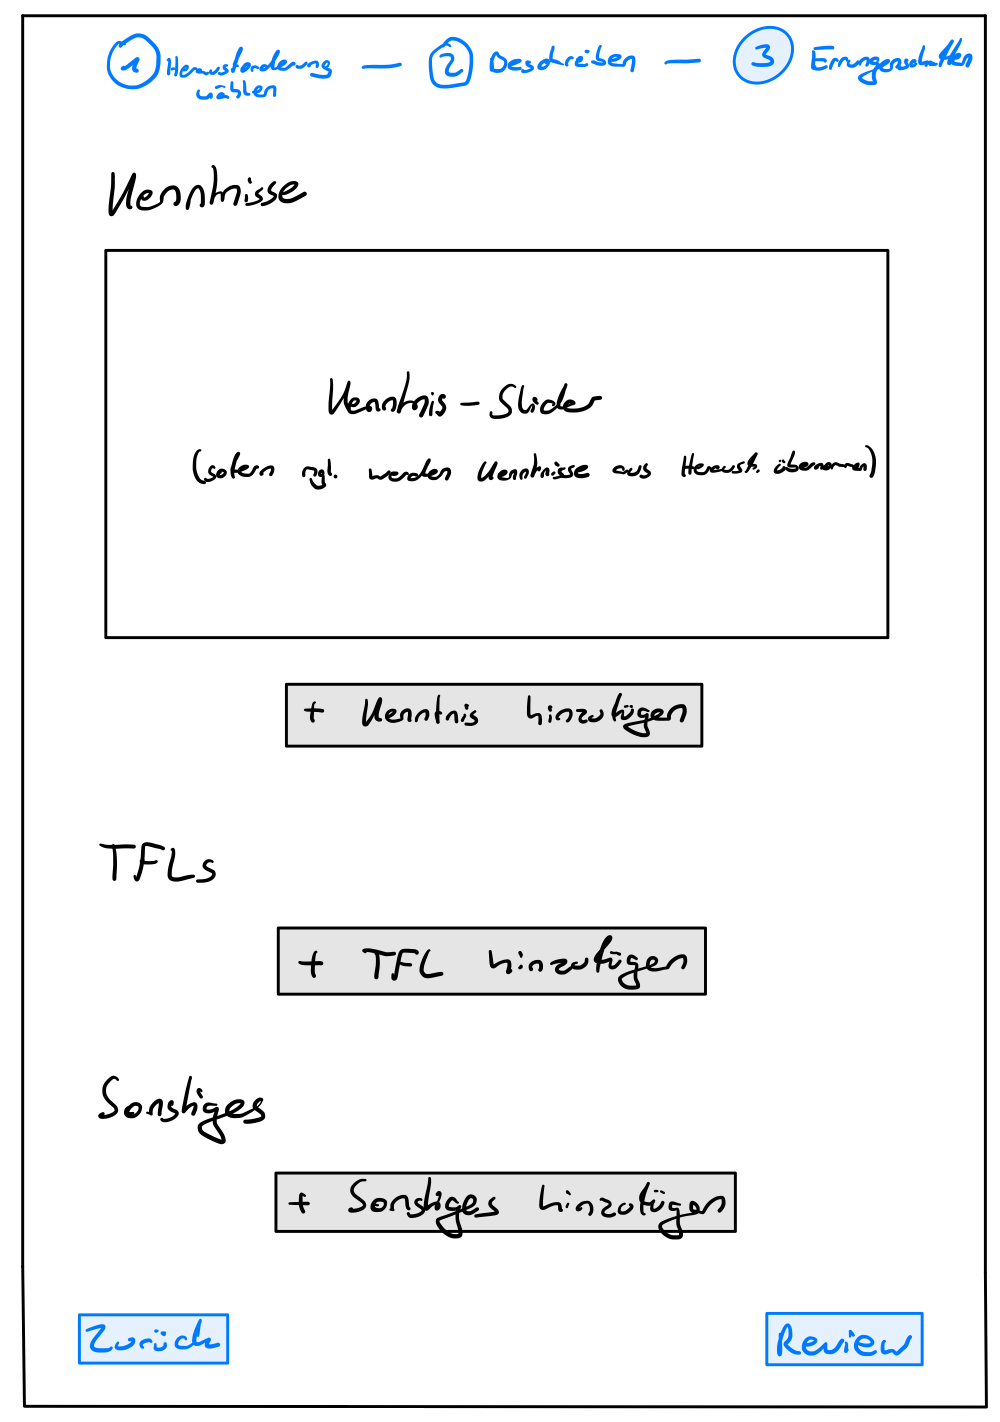 1 Herausforderung wählen — 2 Beschreiben — 3 Errungenschaften
Kenntnisse
Kenntnis - Slider
(sofern mgl. werden Kenntnisse aus Herausf. übernommen)
+ Kenntnis hinzufügen
TFLs
+ TFL hinzufügen
Sonstiges
+ Sonstiges hinzufügen
Zurück
Review